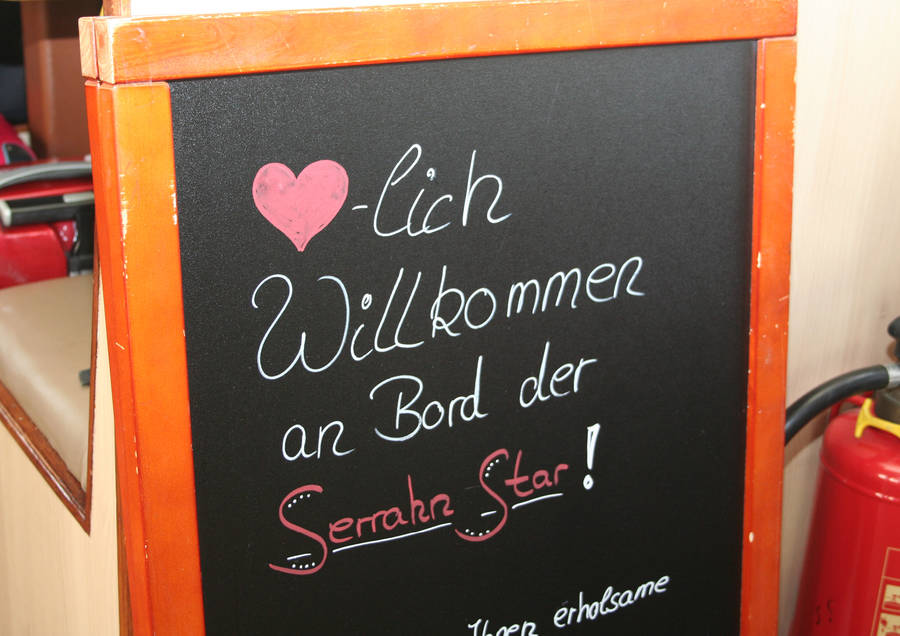 ♥-lich
Willkommen
an Bord der
Serrahn Star!
Ihnen erholsame